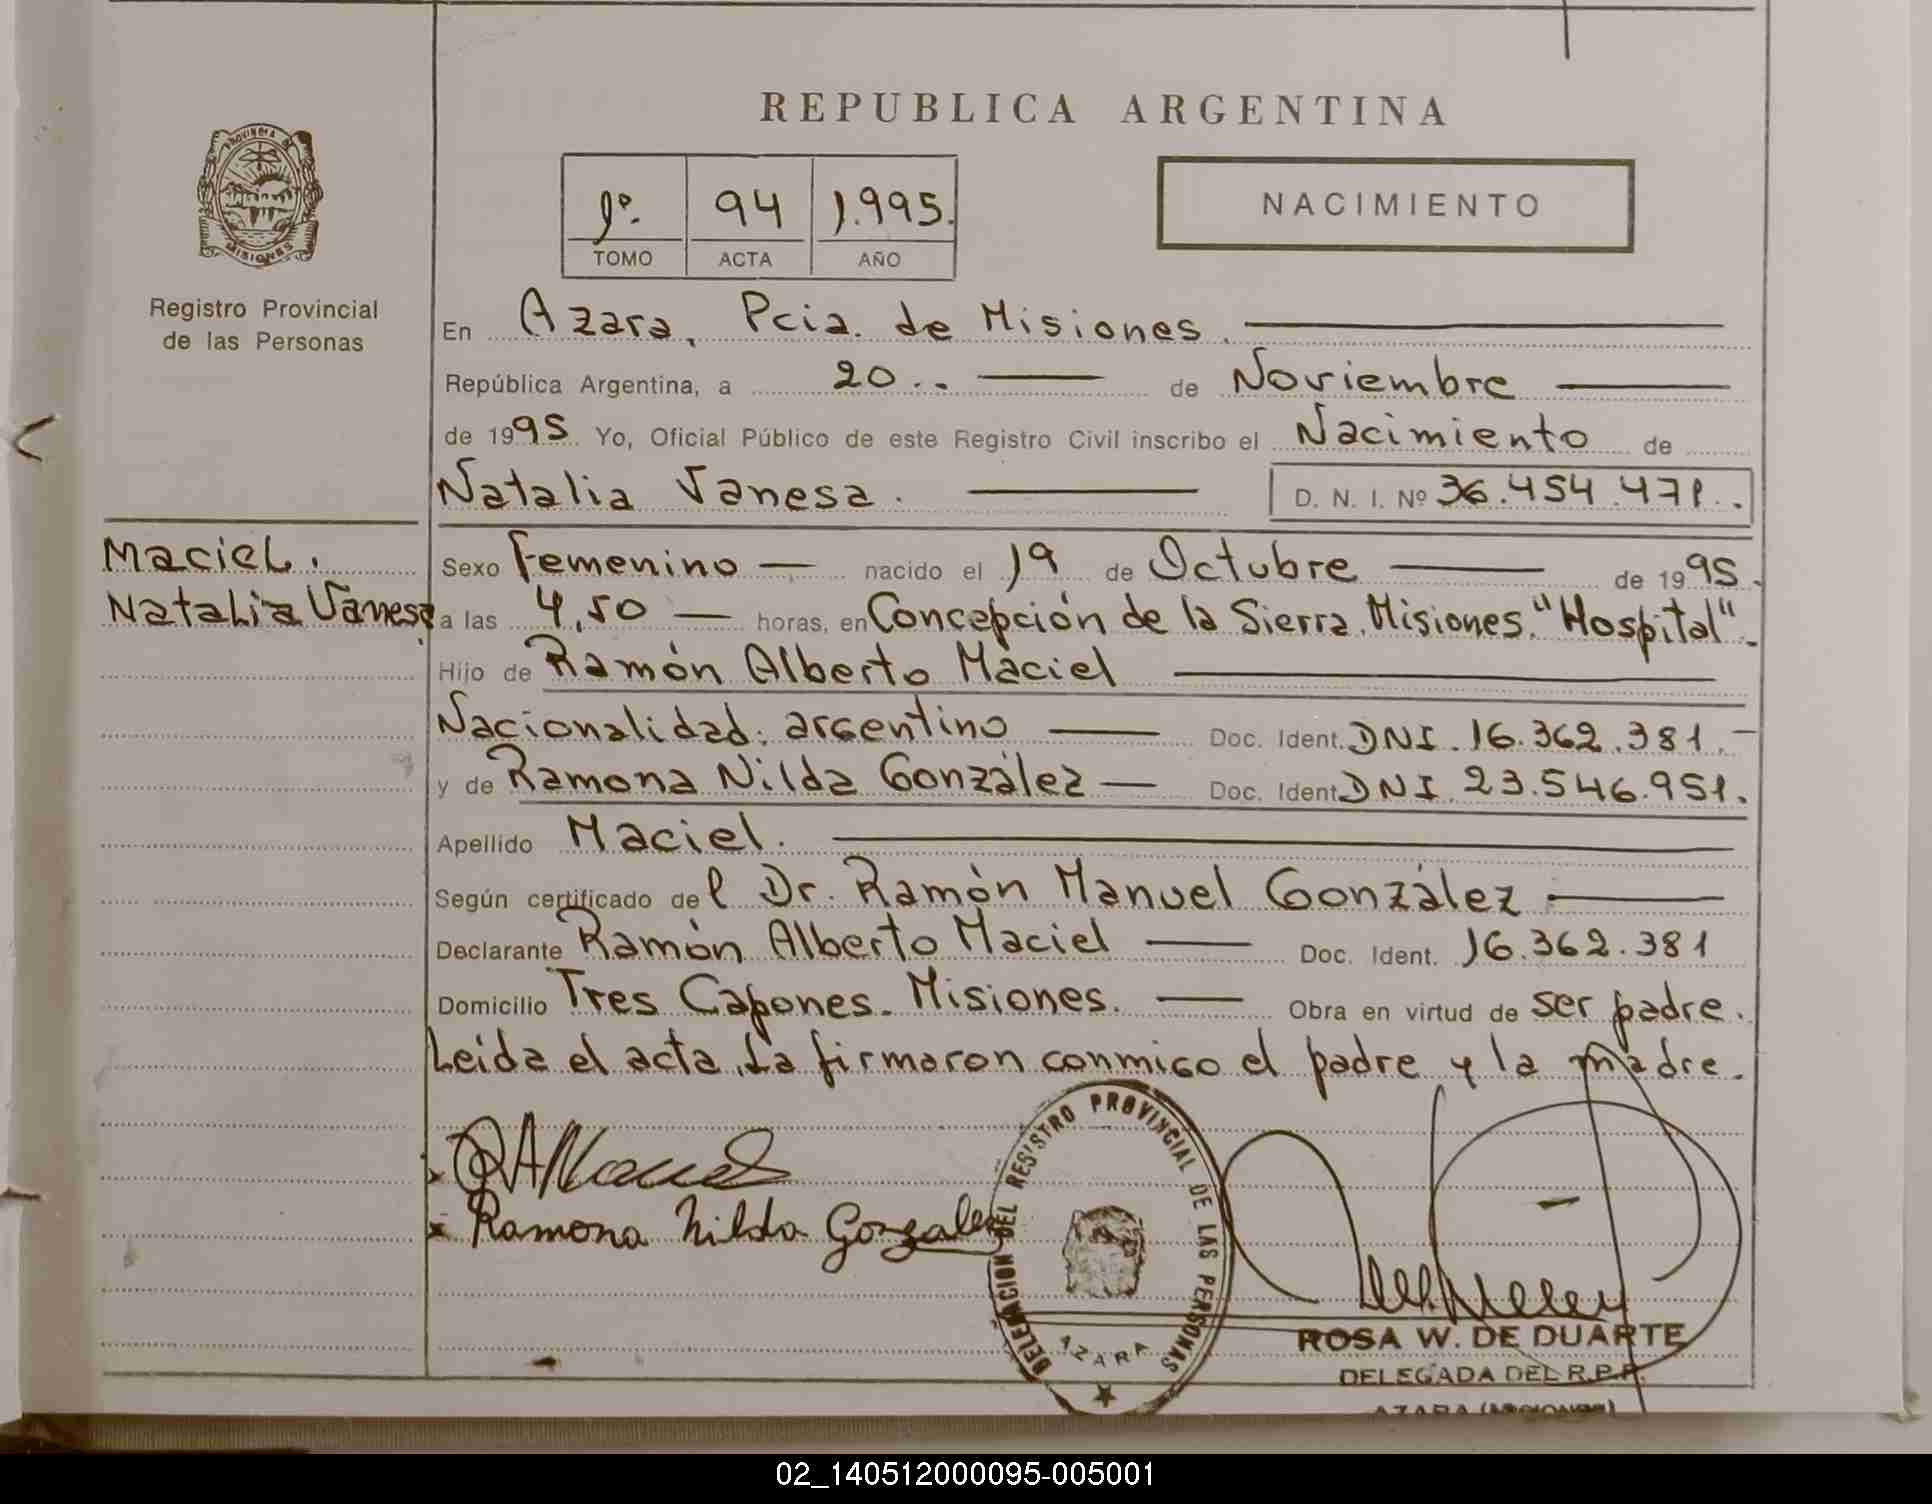 REPUBLICA ARGENTINA
PROVINCIA DE
MISIONES
Registro Provincial
de las Personas
1º. 94 1.995.
TOMO ACTA AÑO
NACIMIENTO
En Azara, Pcia. de Misiones.
República Argentina, a 20.. de Noviembre
de 1995 Yo, Oficial Público de este Registro Civil inscribo el Nacimiento de
Natalia Vanesa. D. N. I. Nº 36.454.471..
Maciel.
Natalia Vanesa
Sexo Femenino nacido el 19 de Octubre de 1995.
a las 4,50 horas, en Concepción de la Sierra, Misiones. "Hospital".
Hijo de Ramón Alberto Maciel
Nacionalidad: argentino Doc. Ident. DNI. 16.362.381.
y de Ramona Nilda González Doc. Ident. DNI. 23.546.951.
Apellido Maciel.
Según certificado del Dr. Ramón Manuel González
Declarante Ramón Alberto Maciel Doc. Ident. 16.362.381
Domicilio Tres Capones. Misiones. Obra en virtud de ser padre.
Leida el acta, la firmaron conmigo el padre y la madre.
x RAMaciel
x Ramona Nilda Gonzalez
DELEGACION DEL REGISTRO PROVINCIAL DE LAS PERSONAS
AZARA
ROSA W. DE DUARTE
DELEGADA DEL R.P.P.
AZARA (MISIONES)
02_140512000095-005001